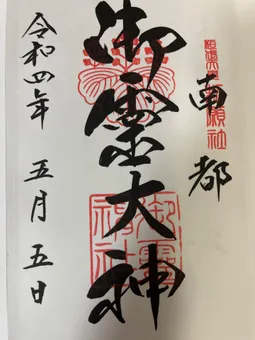 南都
御霊大神
御霊神社
令和四年 五月 五日